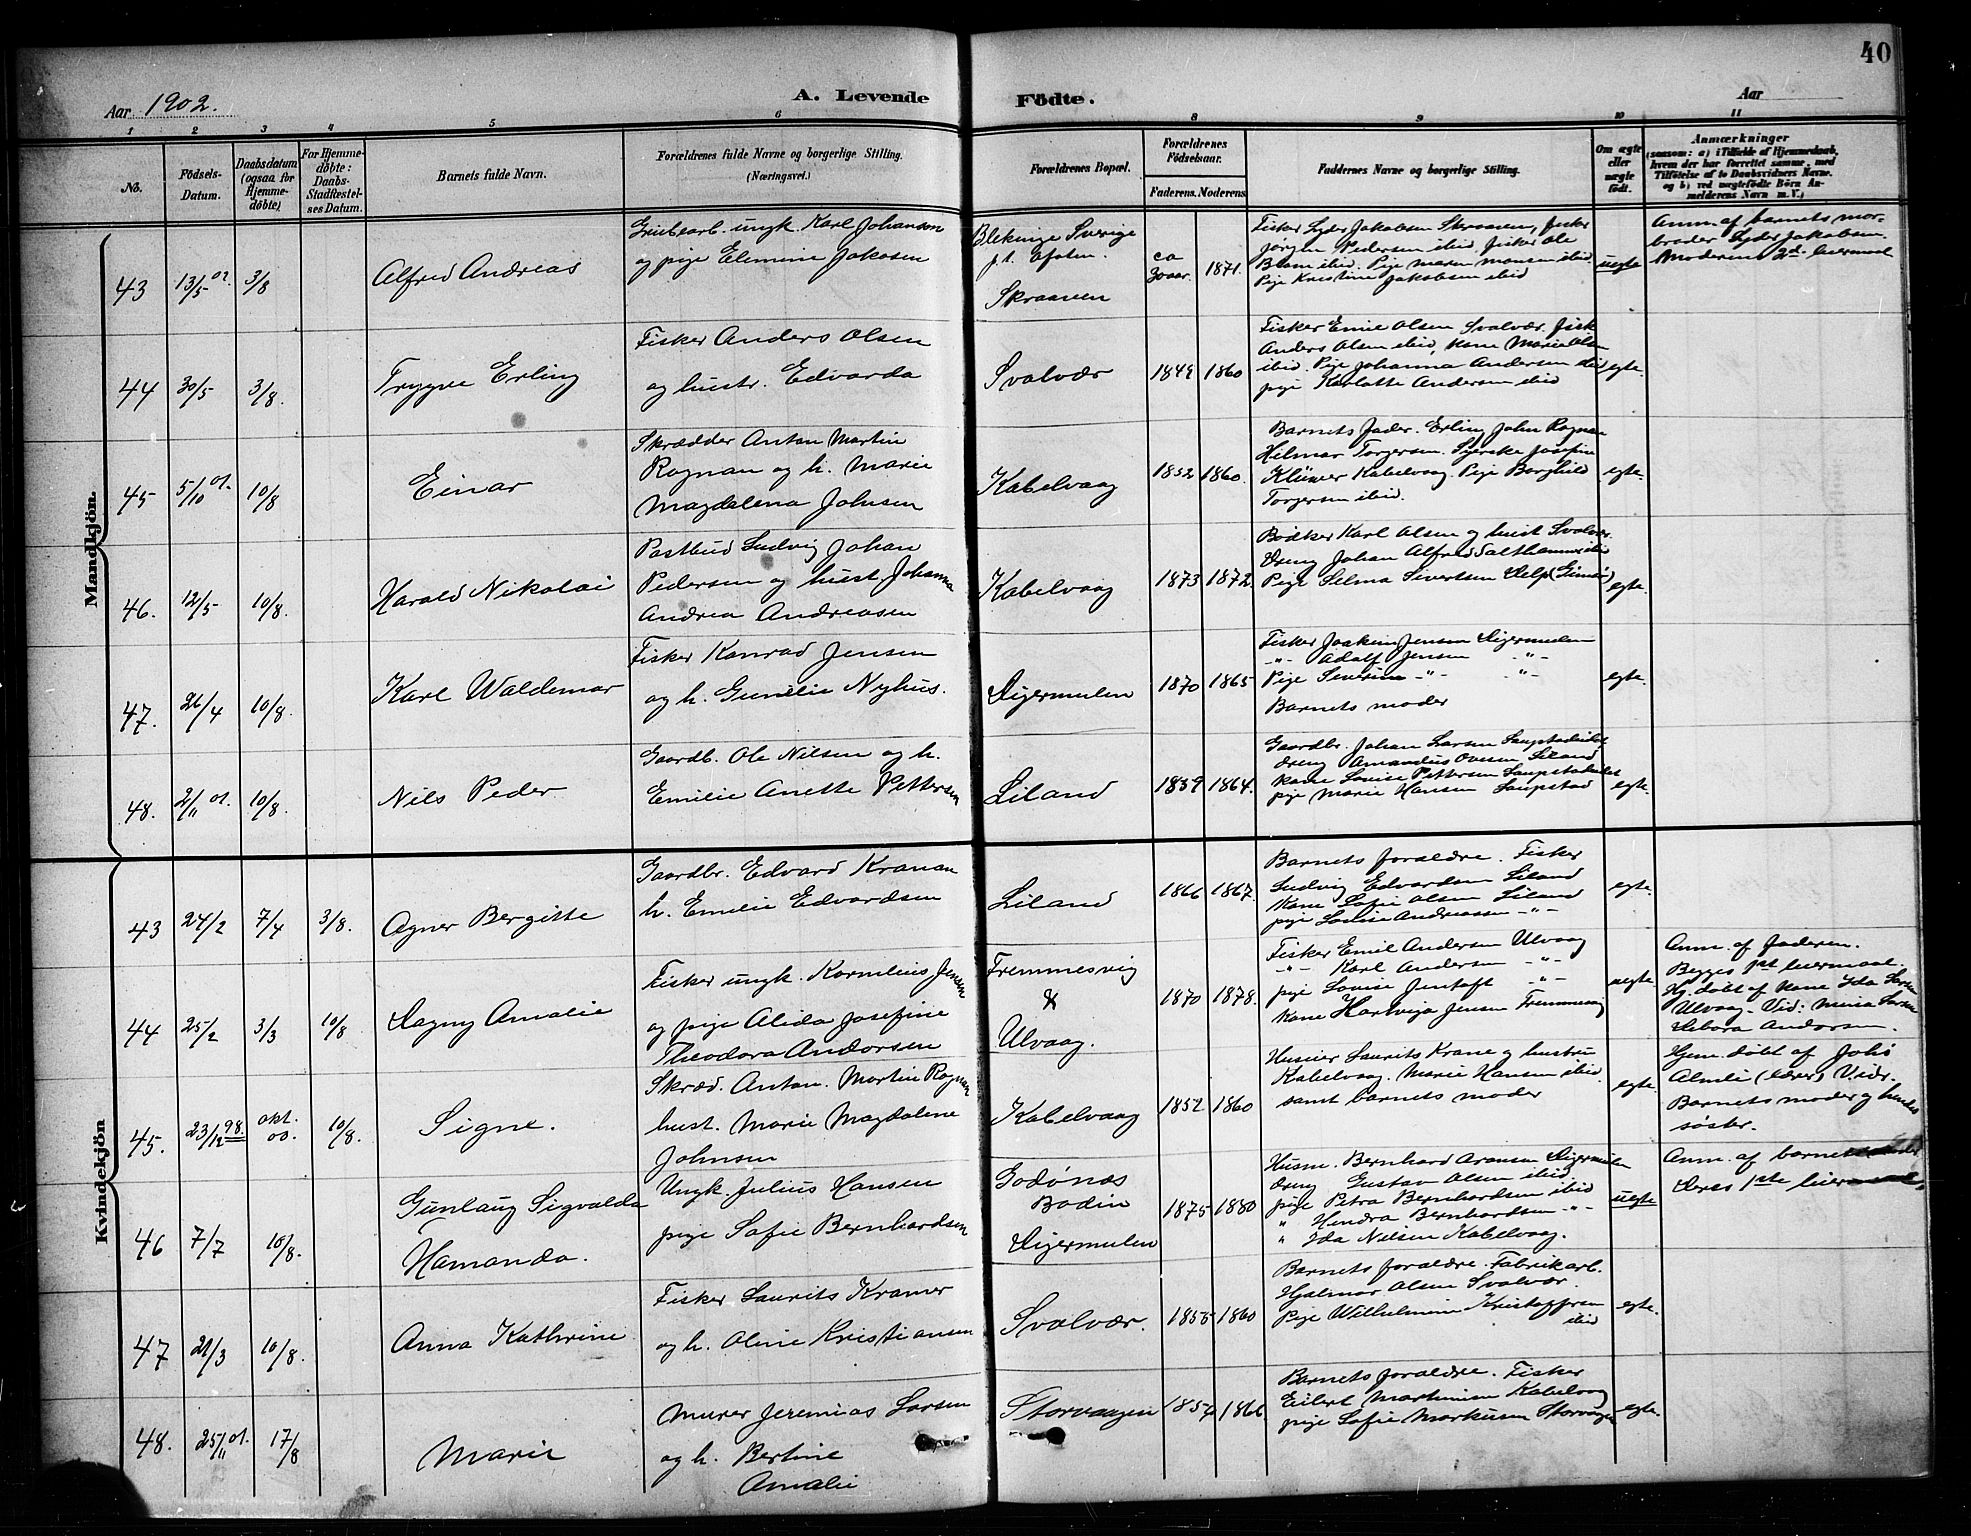 40
Aar 1902.
A. Levende Födte.
Aar
1 2 3 4 5 6 8 9 10 11
No.
Födsels-Datum.
Daabsdatum (ogsaa for Hjemme-döbte)
For Hjemme-döbte: Daabs-Stadfæstel-ses Datum.
Barnets fulde Navn.
Forældrenes fulde Navne og borgerlige Stilling.
(Næringsvei.)
Forældrenes Bopæl.
Forældrenes Födselsaar.
Faderens. Moderens
Faddernes Navne og borgerlige Stilling.
Om ægte eller uægte födt.
Anmærkninger
(saasom: a) i Tilfælde af Hjemmedaab,
hvem der har forrettet samme, med
Tilföielse af to Daabsvidners Navne.
og b) ved uægtefödte Börn An-
melderens Navn m. V.)
Mandkjön.
43 13/5 02. 3/8
Alfred Andreas
Grubearb. ungk. Karl Johanson
og pige Elmine Jakosen
Blekinge Sverige
p.t. Ofoten.
Skraaven
ca 30 aar. 1871.
Fisker Lyder Jakobsen Skraaven, fisker
Jørgen Pedersen ibid, fisker Ole
Blom ibid. Pige Maren Monsen ibid
Pige Kristine Jakobsen ibid
uegte
Anm. af barnets mor-
broder Lyder Jakobsen.
Moderens 2d. leiermaal
44 30/5 3/8.
Trygve Erling
Fisker Anders Olsen
og hustr. Edvarda
Svolvær
1849 1860
Fisker Emil Olsen Svolvær. Fisk
Anders Olsen ibid, kone Marie Olsen
ibid. Pige Johanna Andersen ibid
pige Karlotte Andersen ibid
egte.
45 5/10 01. 10/8
Einar
Skrædder Anton Martin
Rognan og h. Marie
Magdalena Johnsen
Kabelvaag
1852 1860.
Barnets fader. Erling John Rognan
Helmar Torgersen. Syerske Josefine
Klüwer Kabelvaag. Pige Borghild
Torgersen ibid.
egte.
46. 12/5 10/8.
Harald Nikolai
Postbud Ludvig Johan
Pedersen og hust. Johanna
Andrea Andreasen
Kabelvaag
1873 1872.
Bødker Karl Olsen og hust Svolvær.
Dreng Johan Alfred Salthammer ibid
Pige Selma Sivertsen Delp (Gimsø)
egte.
47. 26/4 10/8.
Karl Waldemar
Fisker Konrad Jensen
og h. Gunelie Nyhus.
Digermulen
1870 1865
Fisker Joakim Jensen Digermulen
-"- Adolf Jensen -"-
Pige Severine -"- -"-
Barnets moder
egte.
48. 2/11 01. 10/8.
Nils Peder
Gaardb. Ole Nilsen og h.
Emilie Anette Pettersen
Liland
1839 1864.
Gaardbr. Johan Larsen
dreng Amandus Ovesen Liland
kone Lovise Pettersen
pige Marie Hansen Laupstad
egte.
Kvindekjön
43 24/2 7/4 3/8.
Agner Bergitte
Gaardbr. Edvard Kranan
h. Emilie Edvardsen
Liland
1866 1867.
Barnets foraldre. Fisker
Ludvig Edvardsen Liland
Kone Sofie Olsen Liland
pige Lovise Andreassen -"-
egte.
44 25/2 3/3 10/8
Dagny Amalie
Fisker ungk. Kornelius Jensen
og pige Alida Josefine
Theodora Andorsen
Fremmesvig
&
Ulvaag.
1870 1878.
Fisker Emil Andersen Ulvaag
-"- Karl Andersen -"-
pige Lovise Jentoft -"-
Kone Hartvige Jensen Fremmesvig
uegte.
Anm. af faderen.
Begges 1st leiermaal.
Hj. døbt af kone Ida Larsen
Ulvaag. Vid: Mina Larsen
Debora Andorsen.
45. 23/12 98. okt. 00. 10/8.
Signe.
Skræd. Anton. Martin Rognan
hust. Marie Magdalene
Johnsen
Kabelvaag
1852 1860
Husier Laurits Krane og hustru
Kabelvaag. Marie Hansen ibid.
samt barnets moder
egte.
Hjem. døbt af Johs
Almli (lærer) Vidr.
Barnets moder og hendes
søster.
46 7/7 10/8.
Gunlaug Sigvalda
Hamanda.
Ungk. Julius Hansen
pige Sofie Bernhardsen
Godønes
Bodin
Digermulen
1875 1880
Husm. Bernhard Aronsen Digermulen
dreng Gustav Olsen ibid
pige Petra Bernhardsen ibid
" Hendra Bernhardsen -"-
" Ida Nilsen Kabelvaag.
uegte
Anm. af barnets
Deres 1ste leiermaal,
47 21/3 10/8.
Anna Kathrine
Fisker Laurits Kramer
og h. Oline Kristiansen
Svolvær.
1855 1860
Barnets foraldre. Fabrikarb.
Hjalmar Olsen Svolvær.
Pige Wilhelmine Kristoffersen
ibid
egte.
48. 25/11 01. 17/8
Marie
Murer Jeremias Larsen
og h. Bertine
Amalie
Storvaagen
1854 1866
Barnets foraldre. Fisker
Eilert Martinussen Kabelvaag
pige Sofie Markusen Storvaagen
egte.